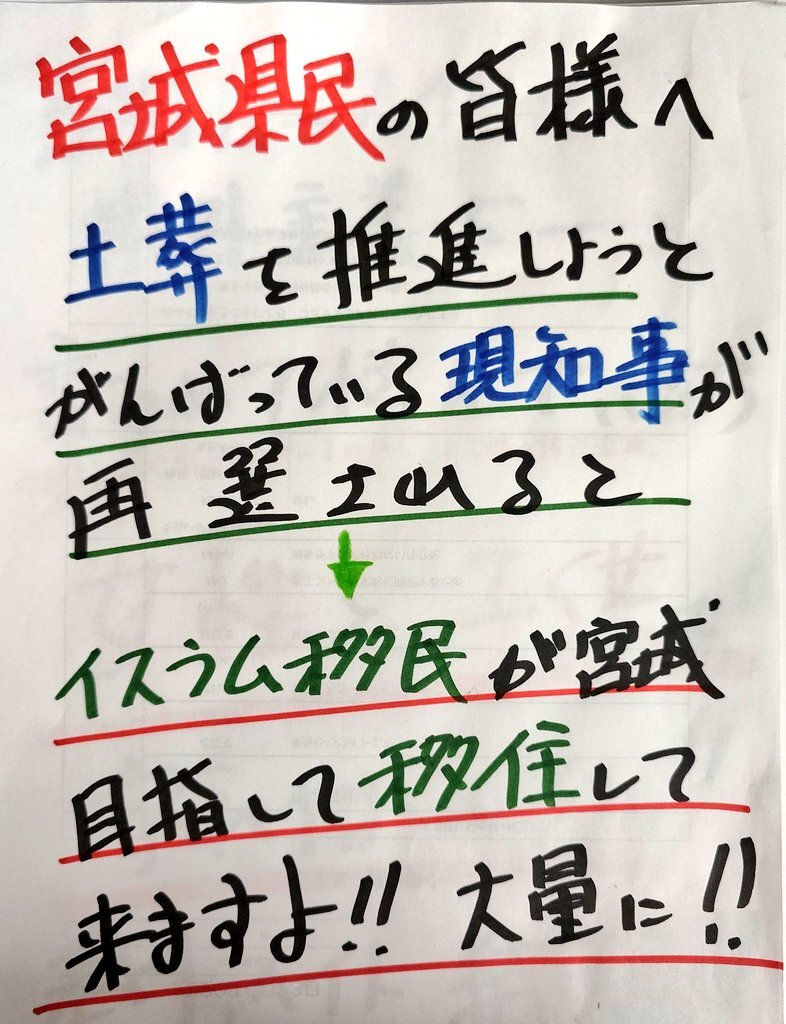 宮城県民の皆様へ
土葬を推進しようと
がんばっている現知事が
再選されると
↓
イスラム移民が宮城
目指して移住して
来ますよ!! 大量に!!